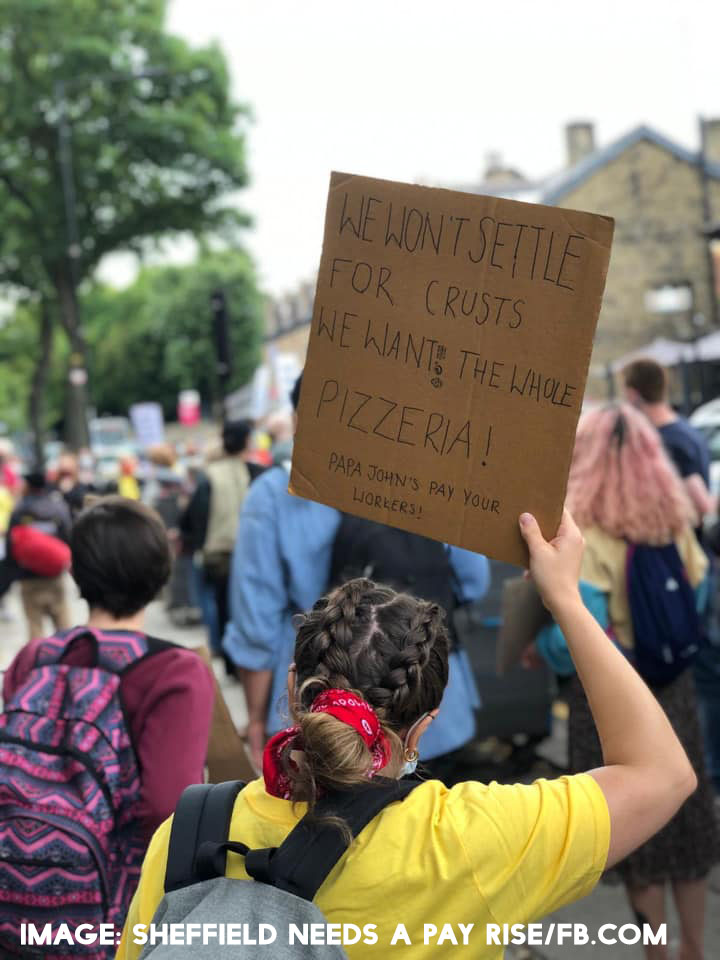 WE WON'T SETTLE
FOR CRUSTS
WE WANT THE WHOLE
PIZZERIA!
PAPA JOHN'S PAY YOUR
WORKERS!
IMAGE: SHEFFIELD NEEDS A PAY RISE/FB.COM